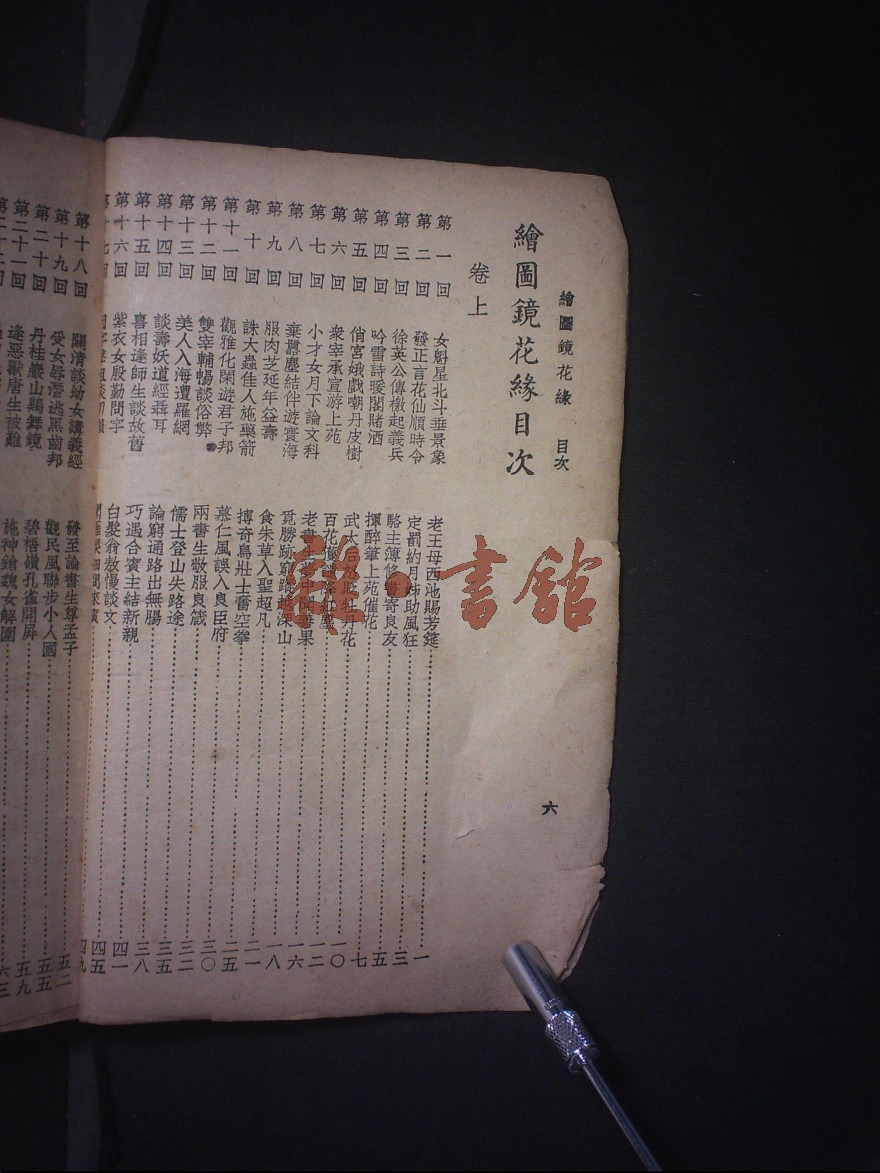 繪圖鏡花緣 目次
六
繪圖鏡花緣目次
卷上
第一回 女魁星北斗垂景象 老王母西池賜芳筵 一
第二回 發正言花仙順時令 定罰約月姊助風狂 三
第三回 徐英公傳檄起義兵 駱主簿修書寄良友 五
第四回 吟雪詩暖閣賭酒 揮醉筆上苑催花 七
第五回 俏宮娥戲嘲丹皮樹 武太后 牡丹花 一〇
第六回 衆宰承宣游上苑 百花獲譴降紅塵 一二
第七回 小才女月下論文科 老書生夢中聞善果 一六
第八回 棄囂塵結伴遊寰海 覓勝跡窮蹤越深山 一八
第九回 服肉芝延年益壽 食朱草入聖超凡 二一
第十回 誅大蟲佳人施藥箭 搏奇鳥壯士奮空拳 二五
第十一回 觀雅化閑遊君子邦 慕仁風誤入良臣府 三〇
第十二回 雙宰輔暢談俗弊 兩書生敬服良箴 三二
第十三回 美人入海遭羅網 儒士登山失路途 三五
第十四回 談壽妖道經聶耳 論窮通路出無腸 三八
第十五回 喜相逢師生談故舊 巧遇合賓主結新親 四一
第十六回 紫衣女殷勤問字 白髮翁傲慢談文 四五
四九
第十八回 闢清談幼女講義經 發至論書生尊孟子 五二
第十九回 受女辱潛逃黑齒邦 觀民風聯步小人國 五五
第二十回 丹桂巖山鷄舞鏡 碧梧嶺孔雀開屏 五九
第二十一回 逢惡獸唐生被難 施神鎗魏女解圍 六三
雜·書舘